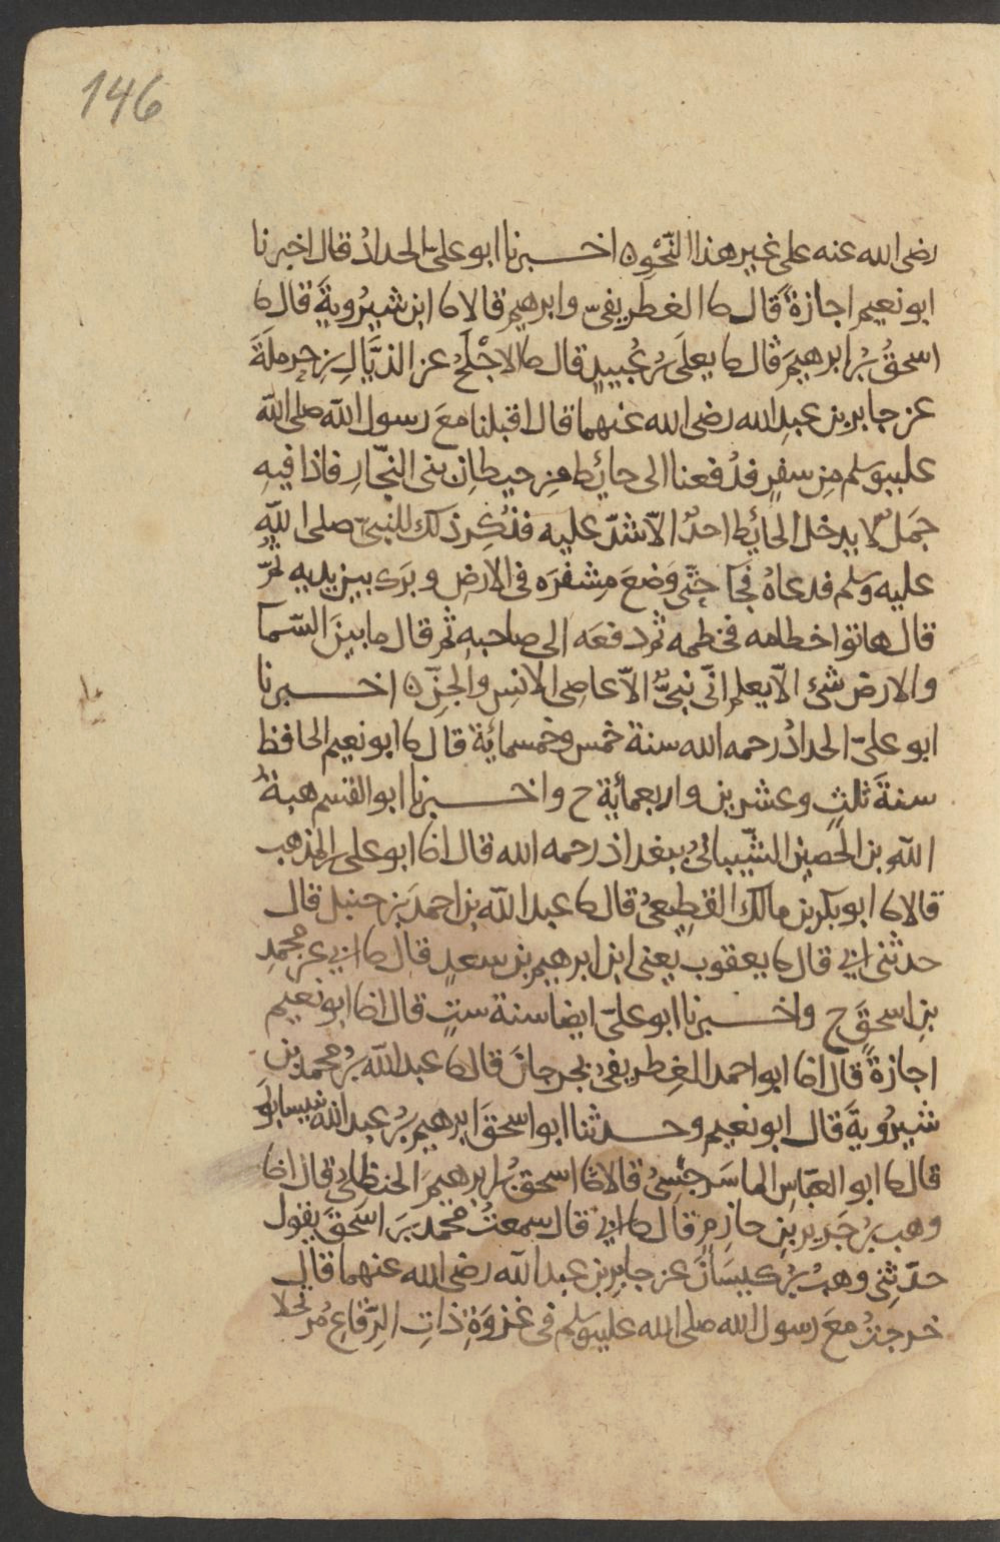 146
رضى الله عنه على غير هذا النّحو ه اخــبرنا ابو علىّ الحدادُ قال اخبرنا
ابو نعيم اجازةً قال ىا الغطريفىّ وابرهيم قالا ىا ابن شيرُويةَ قال ىا
اسحقُ بْرُ ابرهيمَ قال ىا يعلَى بْرُ عُبيدٍ قال ىا الاجْلَحُ عن الذيَّالِ بنِ حرملةَ
عن جابر بن عبدِ الله رضى الله عنهما قال اقبلنا معَ رسول الله صلى الله
عليه وسلم مِن سفرٍ فدُفعنا الى حائِطٍ من حيطانِ بنى النجّارِ فاذا فيهِ
جمَلٌ لا يدخل الحائِط احدٌ الّا شدّ عليه فذُكِر ذلك للنبىّ صلى اللهُ
عليه وسلم فدعاهُ فجآ حتّى وَضعَ مِشفرَه فى الارضِ وبَرَك بين يديه ثمّ
قال هاتوا خطامه فخطمه ثم دفعَه الى صاحبهِ ثم قال ما بينَ السّمآ
والارض شىٌ الّا يعلم انّى نبىٌّ الّا عاصى الانسِ والجنِّ ه اخــبرنا
ابو علىّ الحدادُ رحمه الله سنة خمس وخمسمائِة قال ىا ابو نعيم الحافظ
سنةَ ثلثٍ وعشرين واربعمائِة ح واخــبرنا ابو القسم هبةُ
اللهِ بن الحُصين الشّيبانىُّ ببغداذ رحمه الله قال انا ابو على بن المذهب
قالا ىا ابو بكر بن مالك القطِيعىُ قال ىا عبد الله بن احمدَ بن حنبل قال
حدثنى ابى قال ىا يعقوب يعنى ابن ابرهيم بن سعدٍ قال ىا ابى عن محمدِ
بنِ اسحقَ ح واخــبرنا ابو علىّ ايضا سنة ستٍ قال انا ابو نعيم
اجازةً قال انا ابو احمد الغِطريفىُ بجرجانَ قال ىا عبد الله بْرُ محمد بن
شيرُويةَ قال ابو نعيم وحــدثنا ابو اسحقَ ابرهيم بْرُ عبد الله نيسابورَ
قال ىا ابو العبّاسِ الماسَرجِسىُ قالا ىا اسحقُ بْرُ ابرهيمَ الحنظلىّ قال انا
وهب بْرُ جَرير بنِ حازمٍ قال ىا ابى قال سمعتُ محمد بنَ اسحقَ يقول
حدّثنِى وهبُ بْرُ كيسَانَ عن جابرِ بن عبد الله رضى الله عنهما قال
خرجتُ معَ رسول الله صلى الله عليه وسلم فى غزوَةِ ذاتِ الرّقاعِ مُرتحلا